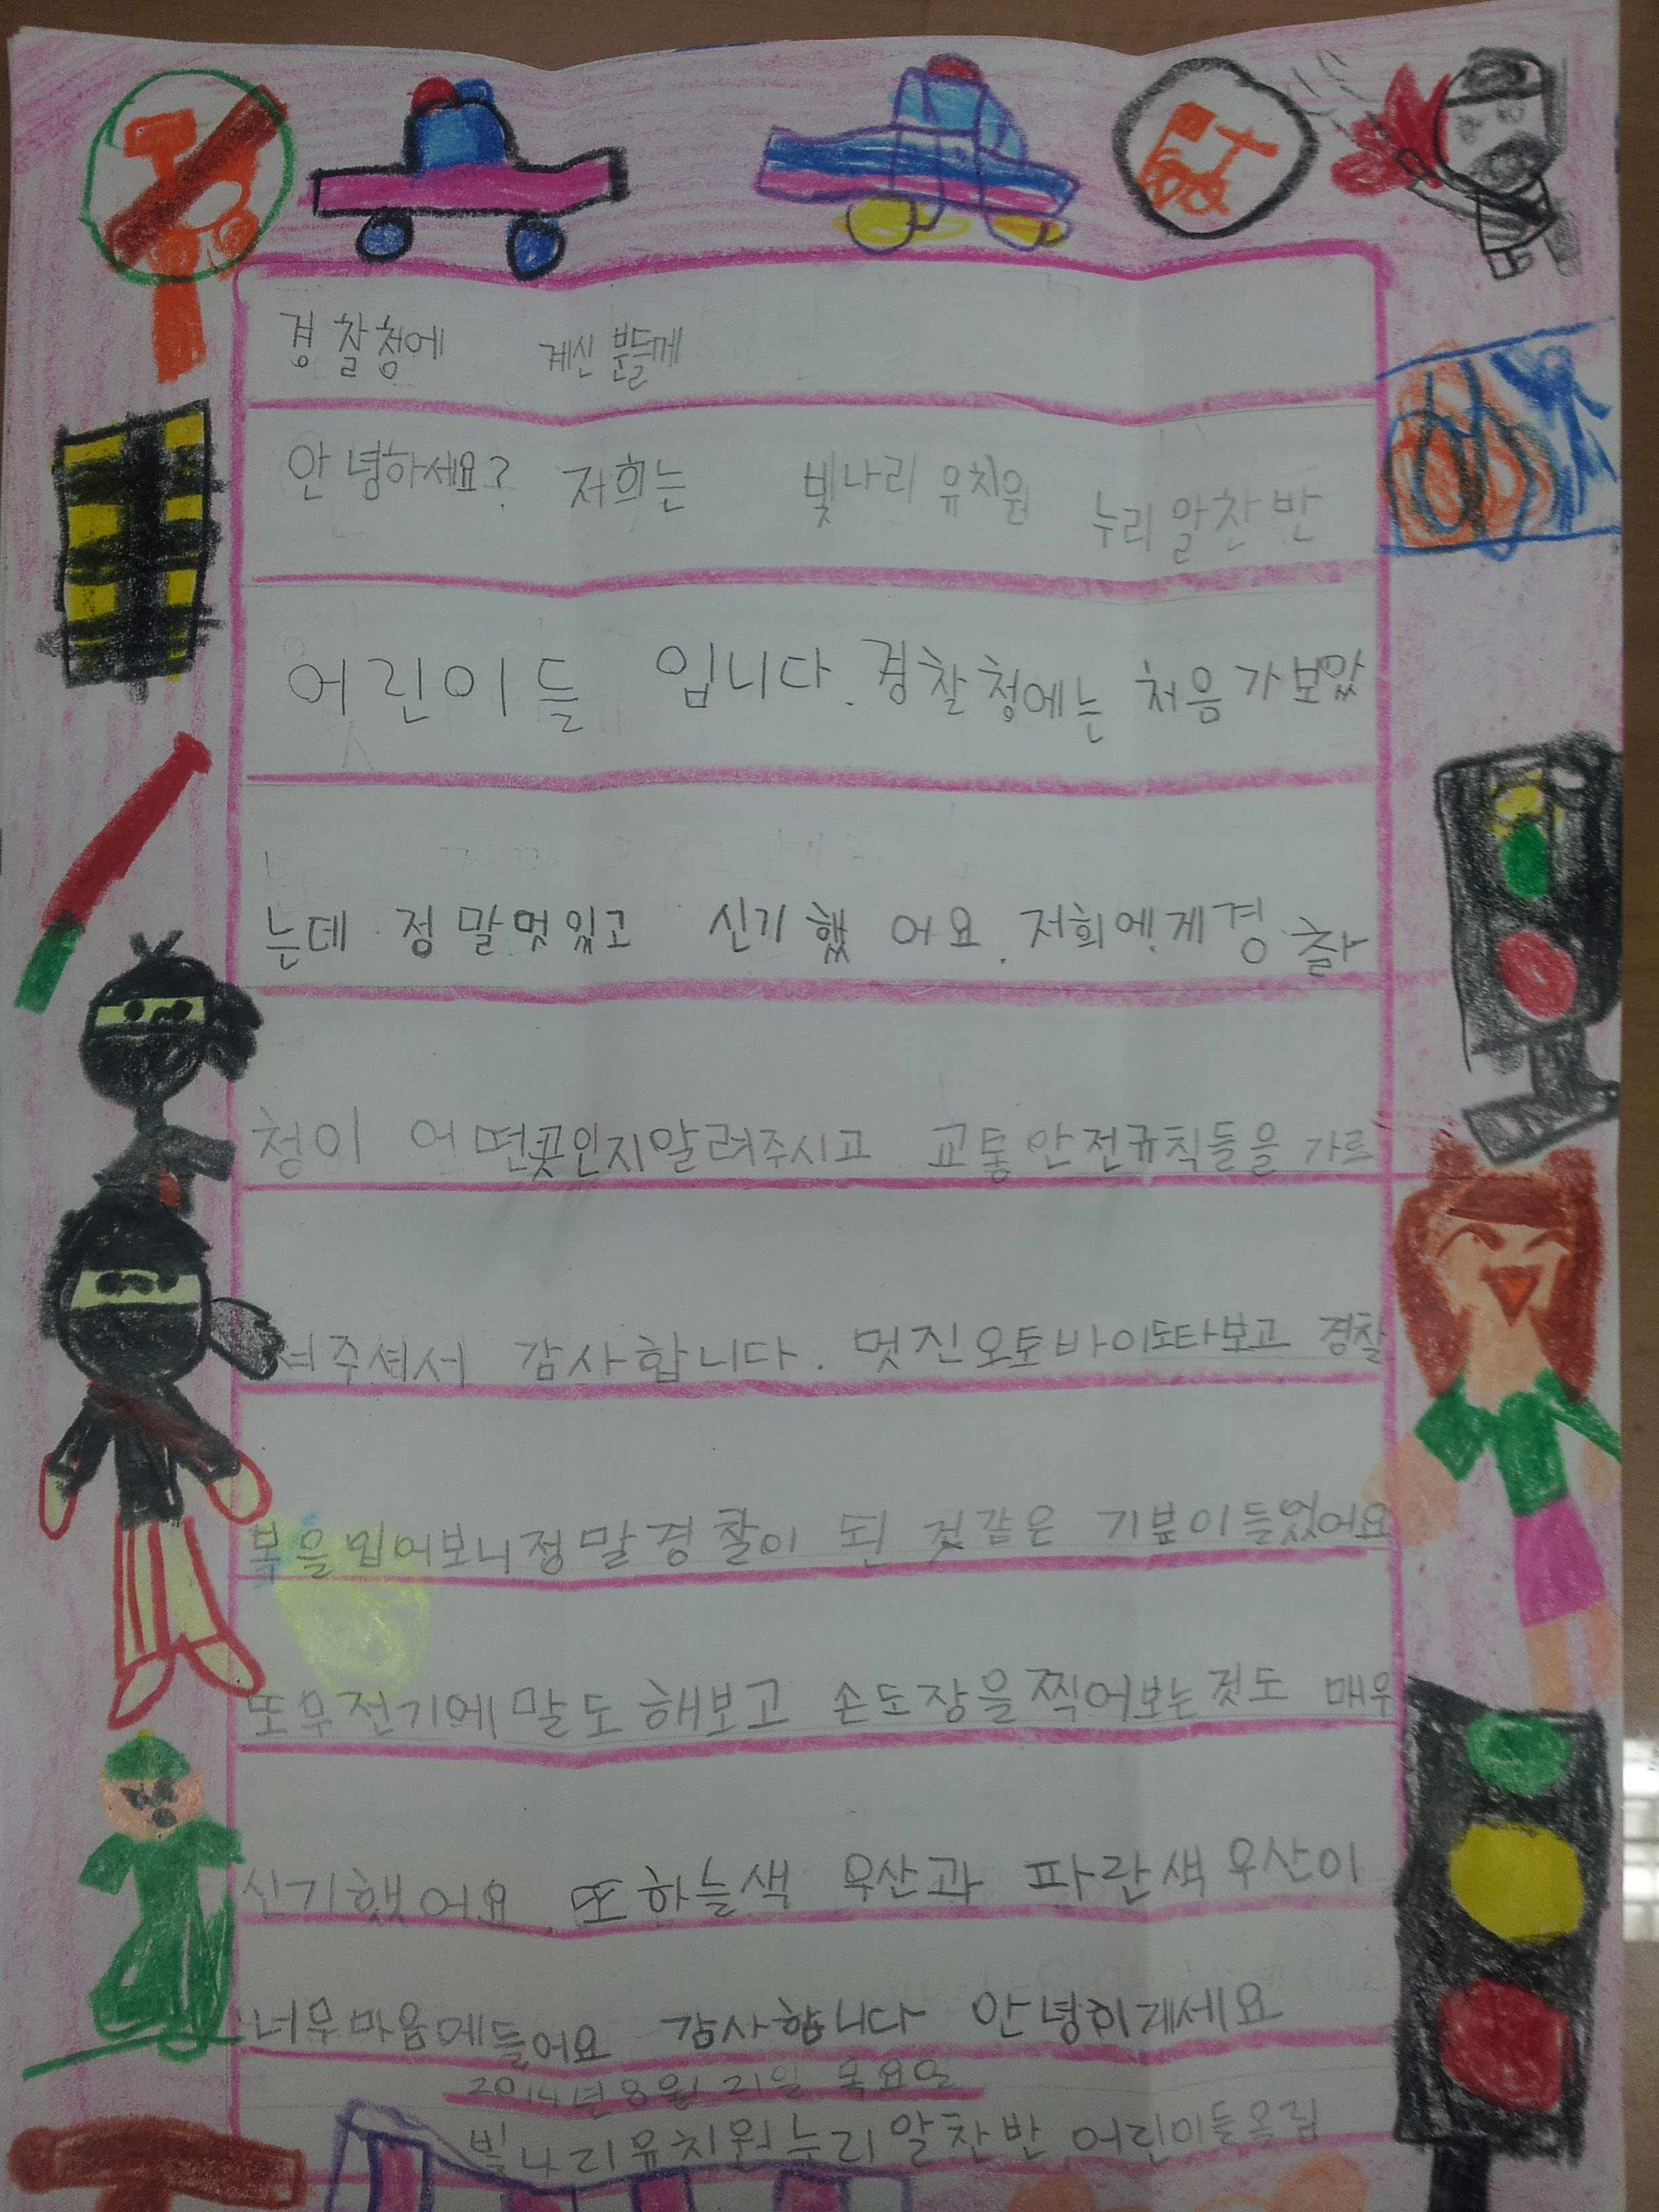 경찰청에 계신 분들께
안녕하세요? 저희는 빛나리 유치원 누리알찬반
어린이들 입니다. 경찰청에는 처음가보았
는데 정말멋있고 신기했어요. 저희에게경찰
청이 어떤곳인지알려주시고 교통안전규칙들을 가르
쳐주셔서 감사합니다. 멋진오토바이도타보고 경찰
복을입어보니정말경찰이 된 것같은 기분이들었어요
또무전기에말도해보고 손도장을찍어보는것도 매우
신기했어요. 또하늘색 우산과 파란색우산이
너무마음에들어요 감사합니다 안녕히계세요
2014년8월21일 목요일
빛나리유치원누리알찬반 어린이들올림